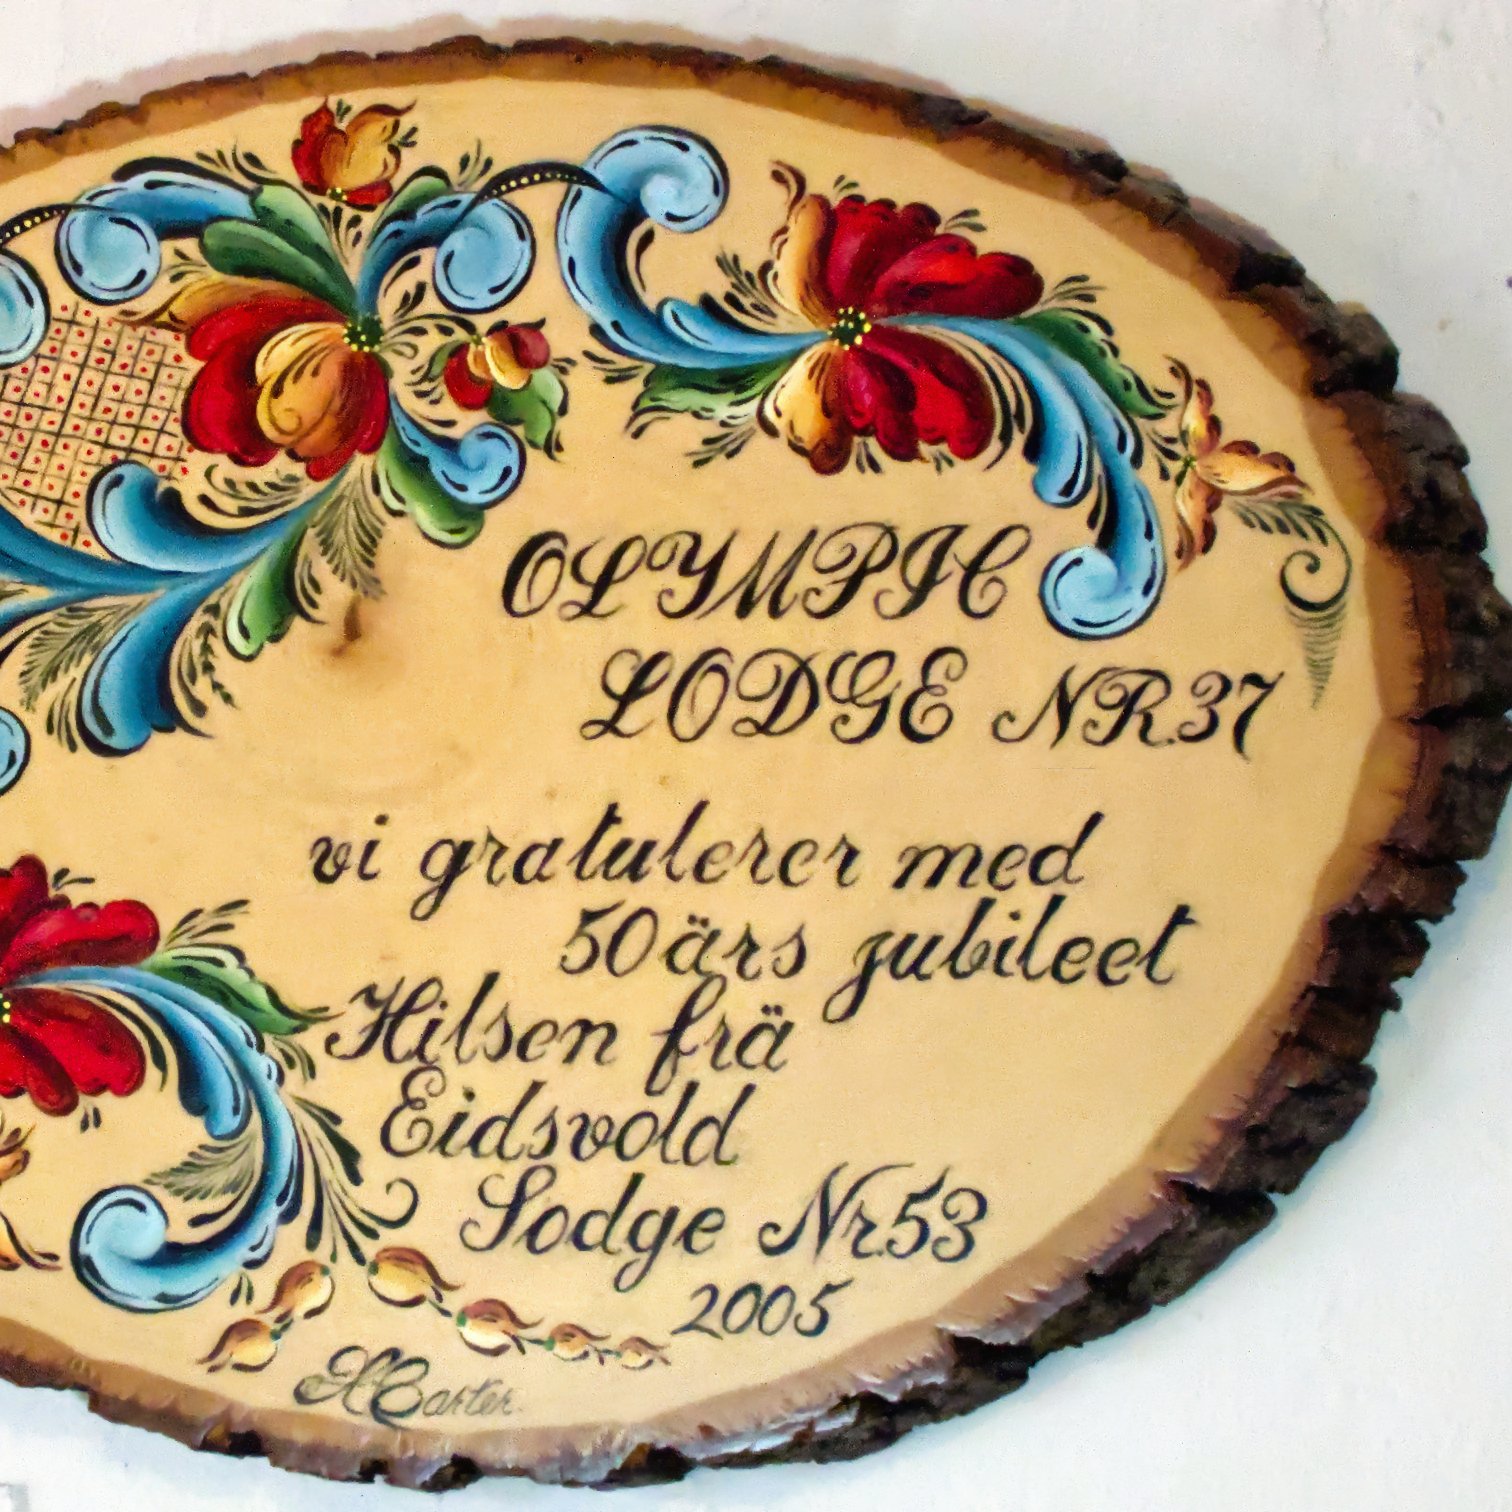 OLYMPIC
LODGE NR.37
vi gratulerer med
50 ärs jubileet
Hilsen frä
Eidsvold
Lodge Nr.53
2005
H Carter